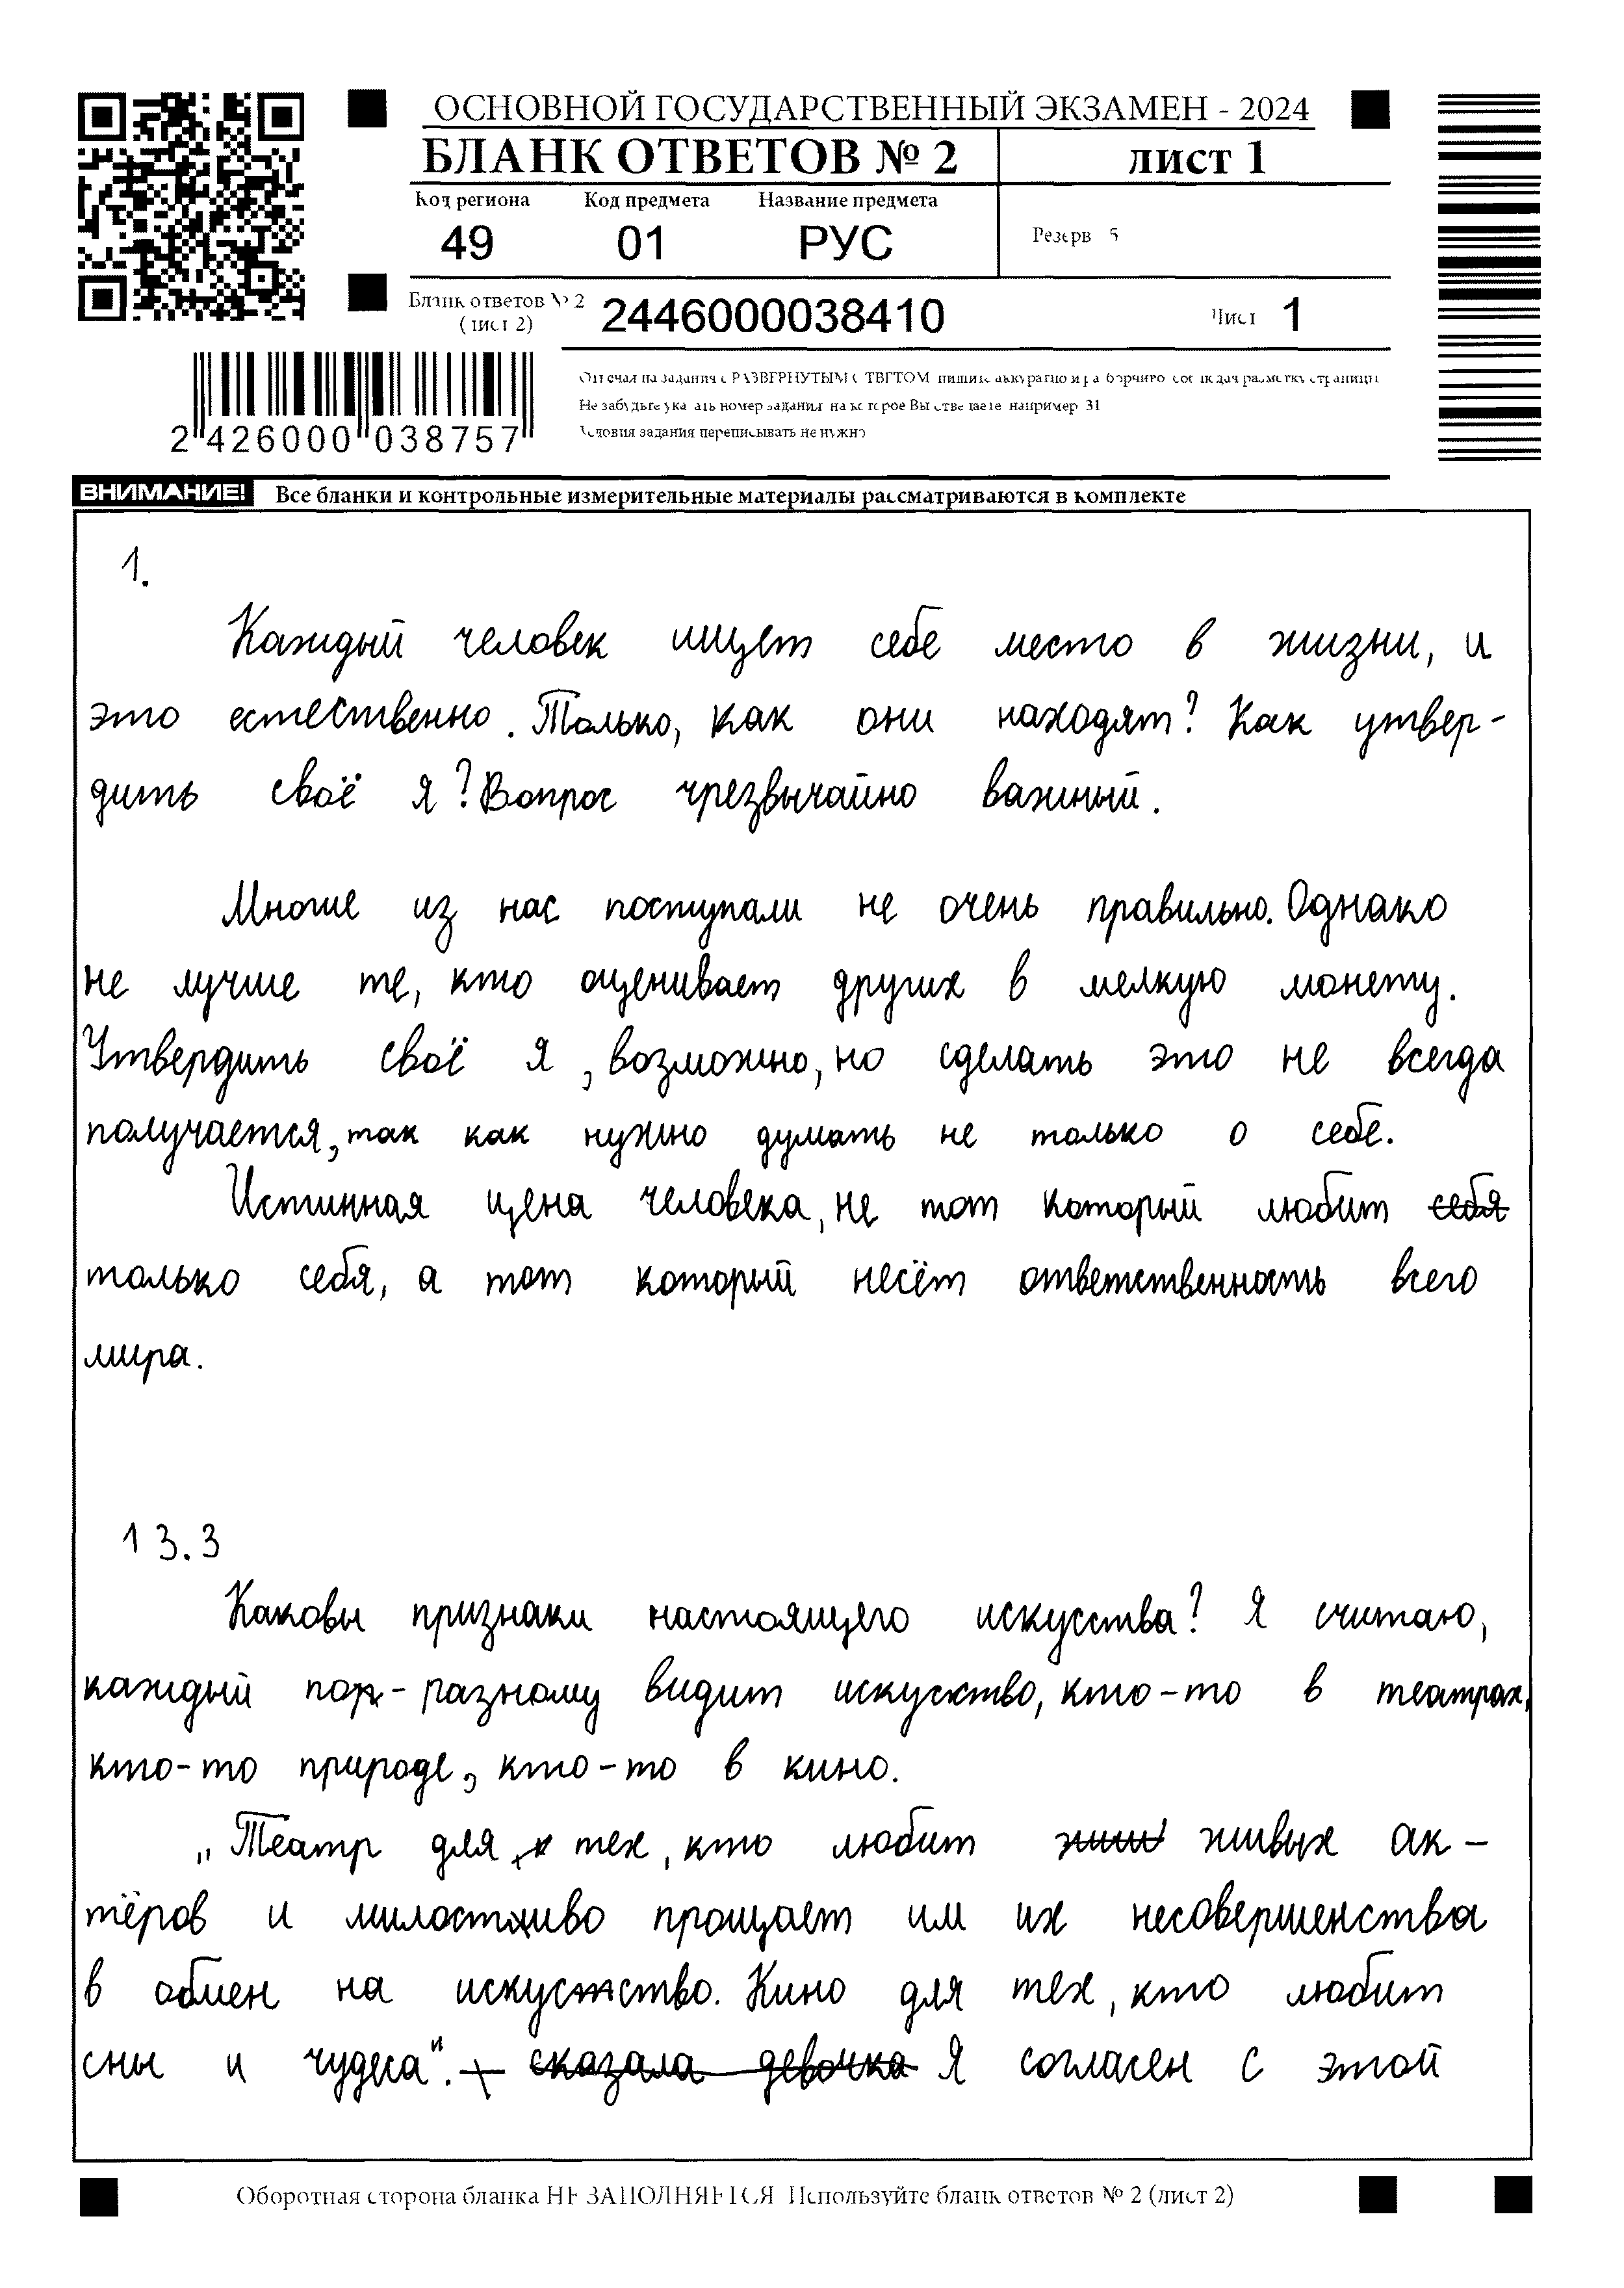 ОСНОВНОЙ ГОСУДАРСТВЕННЫЙ ЭКЗАМЕН - 2024
БЛАНК ОТВЕТОВ № 2 лист 1
Код региона Код предмета Название предмета
49 01 РУС
Резерв 5
Бланк ответов № 2 (лист 2) 2446000038410 Лист 1
2 426000 038757
Отвечая на задания с РАЗВЕРНУТЫМ ОТВЕТОМ пишите аккуратно и разборчиво соблюдая разметку страницы
Не забудьте указать номер задания на которое Вы отвечаете например 31
Условия задания переписывать не нужно
ВНИМАНИЕ! Все бланки и контрольные измерительные материалы рассматриваются в комплекте
1.
Каждый человек ищет себе место в жизни, и
это естественно. Только, как они находят? Как утвер-
дить своё я? Вопрос чрезвычайно важный.
Многие из нас поступали не очень правильно. Однако
не лучше те, кто оценивает других в мелкую монету.
Утвердить своё я, возможно, но сделать это не всегда
получается, так как нужно думать не только о себе.
Истинная цена человека, не тот который любит себя
только себя, а тот который несёт ответственность всего
мира.
13.3
Каковы признаки настоящего искусства? Я считаю,
каждый по-разному видит искусство, кто-то в театрах,
кто-то природе, кто-то в кино.
„Театр для тех, кто любит живых ак-
тёров и милостиво прощает им их несовершенства
в обмен на искусство. Кино для тех, кто любит
сны и чудеса". сказала девочка Я согласен с этой
Оборотная сторона бланка НЕ ЗАПОЛНЯЕТСЯ Используйте бланк ответов № 2 (лист 2)